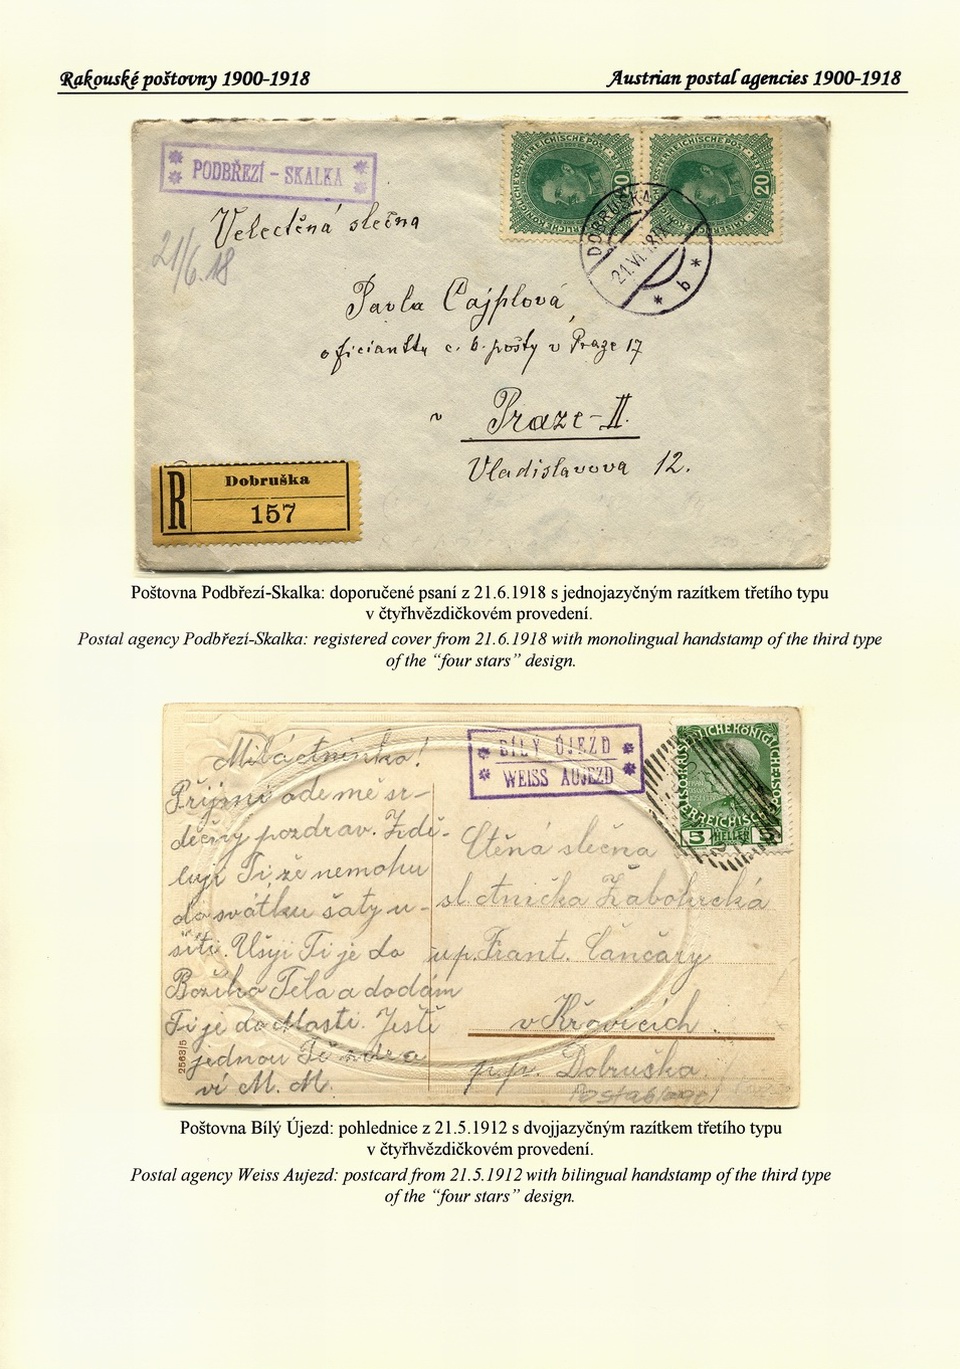 Rakouské poštovny 1900-1918
Austrian postal agencies 1900-1918
PODBŘEZÍ - SKALKA
Velectěná slečna
21/6.18
Pavla Cajplová,
oficiantka c. k. pošty v Praze 17
v Praze-II.
Vladislavova 12.
20
DOBRUŠKA
21.VI.18
b
R
Dobruška
157
Poštovna Podbřezí-Skalka: doporučené psaní z 21.6.1918 s jednojazyčným razítkem třetího typu
v čtyřhvězdičkovém provedení.
Postal agency Podbřezí-Skalka: registered cover from 21.6.1918 with monolingual handstamp of the third type
of the “four stars” design.
BÍLÝ ÚJEZD
WEISS AUJEZD
5 HELLER 5
Přijmi ode mě sr-
dečný pozdrav. Zdě-
luji Ti že nemohu
do svátku šaty u-
šíti. Ušiji Ti je do
Božího Těla a dodám
Ti je do Ještě
jednou Tě zdra
ví M. M.
Ctěná slečna
sl. Žabokrcká
u p. Frant. Čančary
v Křovicích.
p.p. Dobruška.
2563/5
Poštovna Bílý Újezd: pohlednice z 21.5.1912 s dvojjazyčným razítkem třetího typu
v čtyřhvězdičkovém provedení.
Postal agency Weiss Aujezd: postcard from 21.5.1912 with bilingual handstamp of the third type
of the “four stars” design.